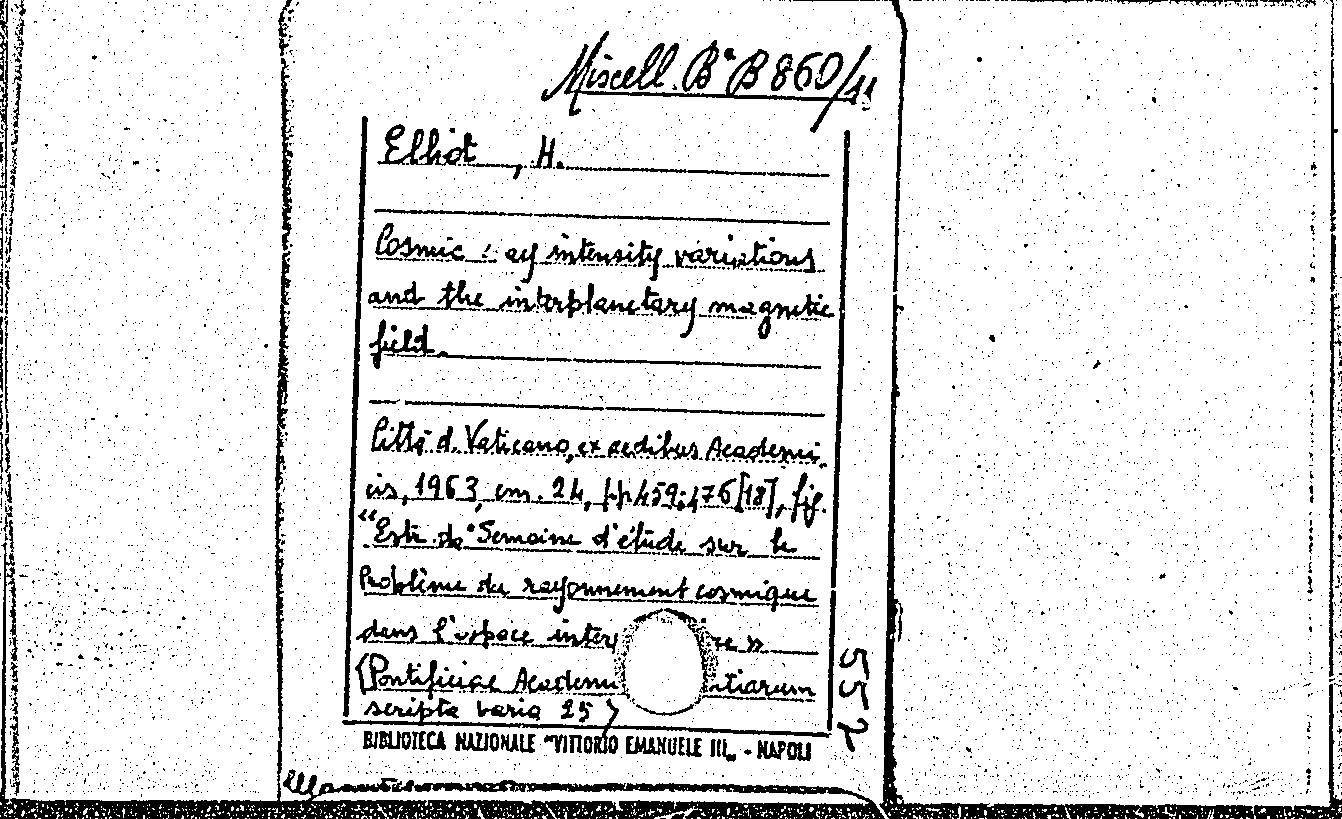 Miscell. Bª B 860/11
Elliot, H.
Cosmic ray intensity variations
and the interplanetary magnetic
field.
Città d. Vaticano, ex aedibus Academi-
cis, 1963, cm. 24, pp 459-476 [18], fig.
"Estr. da "Semaine d'étude sur le
Problème du rayonnement cosmique
dans l'espace inter re »
(Pontificiae Academi tiarum
scripta varia 25)
BIBLIOTECA NAZIONALE "VITTORIO EMANUELE III„ - NAPOLI
552